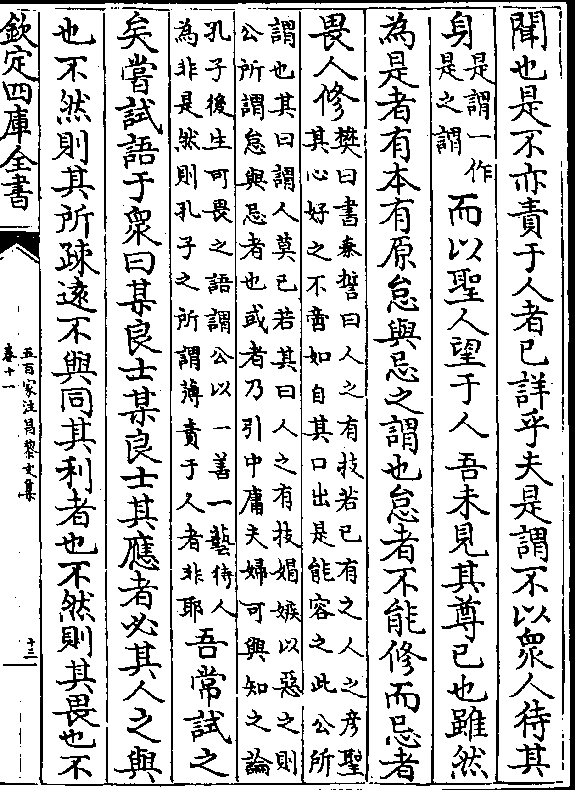 聞也是不亦責于人者已詳乎夫是謂不以衆人待其
身是謂一作
是之謂
而以聖人望于人吾未見其尊已也雖然
為是者有本有原怠與忌之謂也怠者不能修而忌者
畏人修
樊曰書泰誓曰人之有技若已有之人之彦聖
其心好之不啻如自其口出是能容之此公所
謂也其曰謂人莫已若其曰人之有技媢嫉以惡之則
公所謂怠與忌者也或者乃引中庸夫婦可與知之論
孔子後生可畏之語謂公以一善一藝待人
為非是然則孔子之所謂薄責于人者非耶
吾常試之
矣嘗試語于衆曰某良士某良士其應者必其人之與
也不然則其所疎遠不與同其利者也不然則其畏也不
欽定四庫全書
五百家注昌黎文集
卷十一
十三